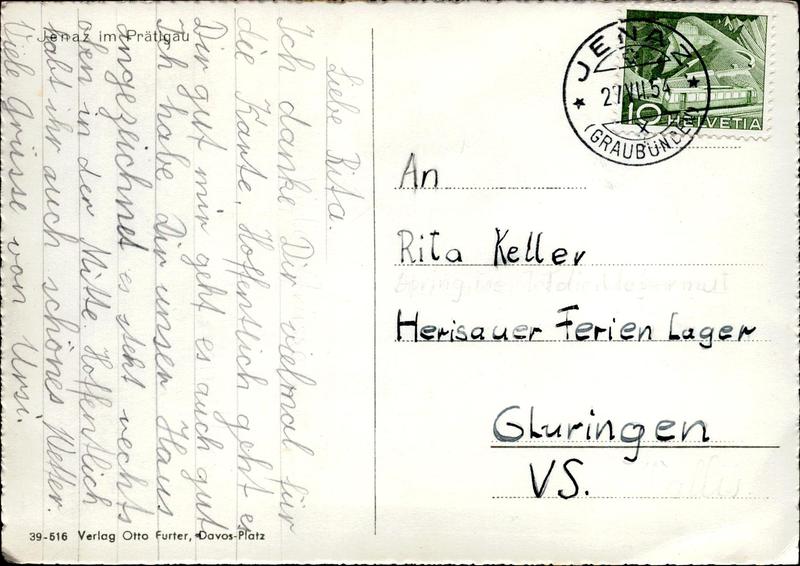 Jenaz im Prätigau
Liebe Rita.
Ich danke Dir vielmal für
die Karte. Hoffentlich geht es
Dir gut mir geht es auch gut
Ich habe Dir unser Haus
angezeichnet es steht rechts
oben in der Mitte. Hoffentlich
habt ihr auch schönes Wetter.
Viele Grüsse von Ursi.
39-516 Verlag Otto Furter, Davos-Platz
JENAZ
27.VII.54
(GRAUBÜNDEN)
10 HELVETIA
An
Rita Keller
Herisauer Ferien Lager
Gluringen
VS.